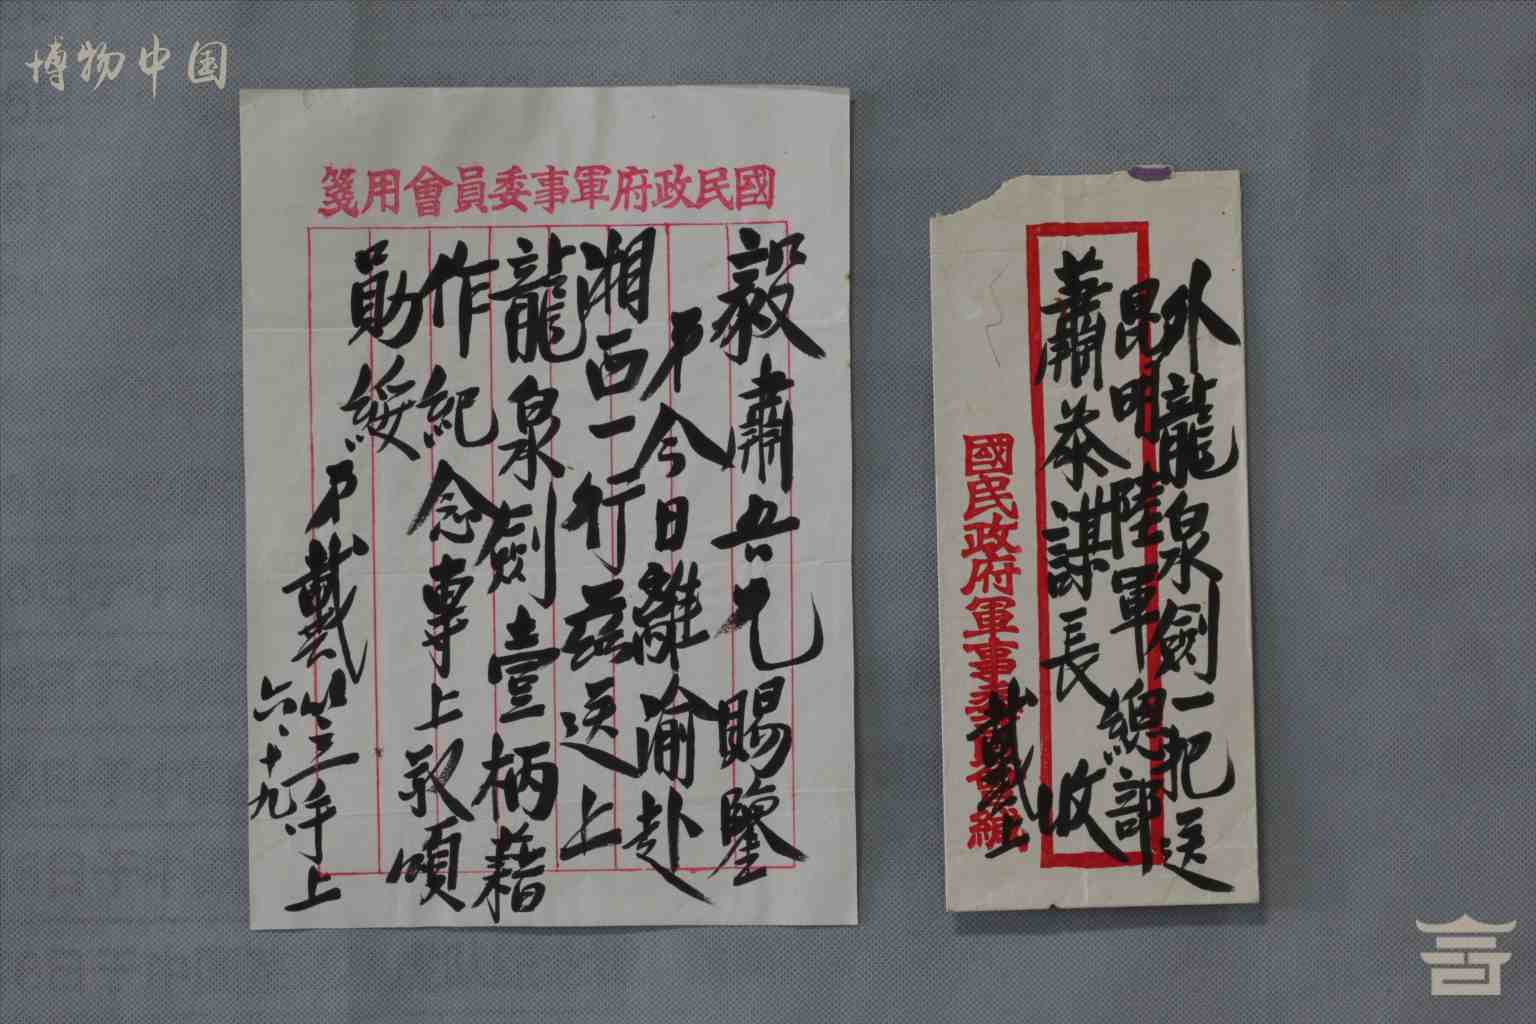 博物中国
國民政府軍事委員會用箋
毅肅吾兄賜鑒
弟今日離渝赴
湘西一行茲送上
龍泉劍壹柄藉
作紀念專上敬頌
勛綏
弟戴笠手上
六、十九、
外龍泉劍一把送
昆明陸軍總部
蕭參謀長收
戴緘上
國民政府軍事委員會緘